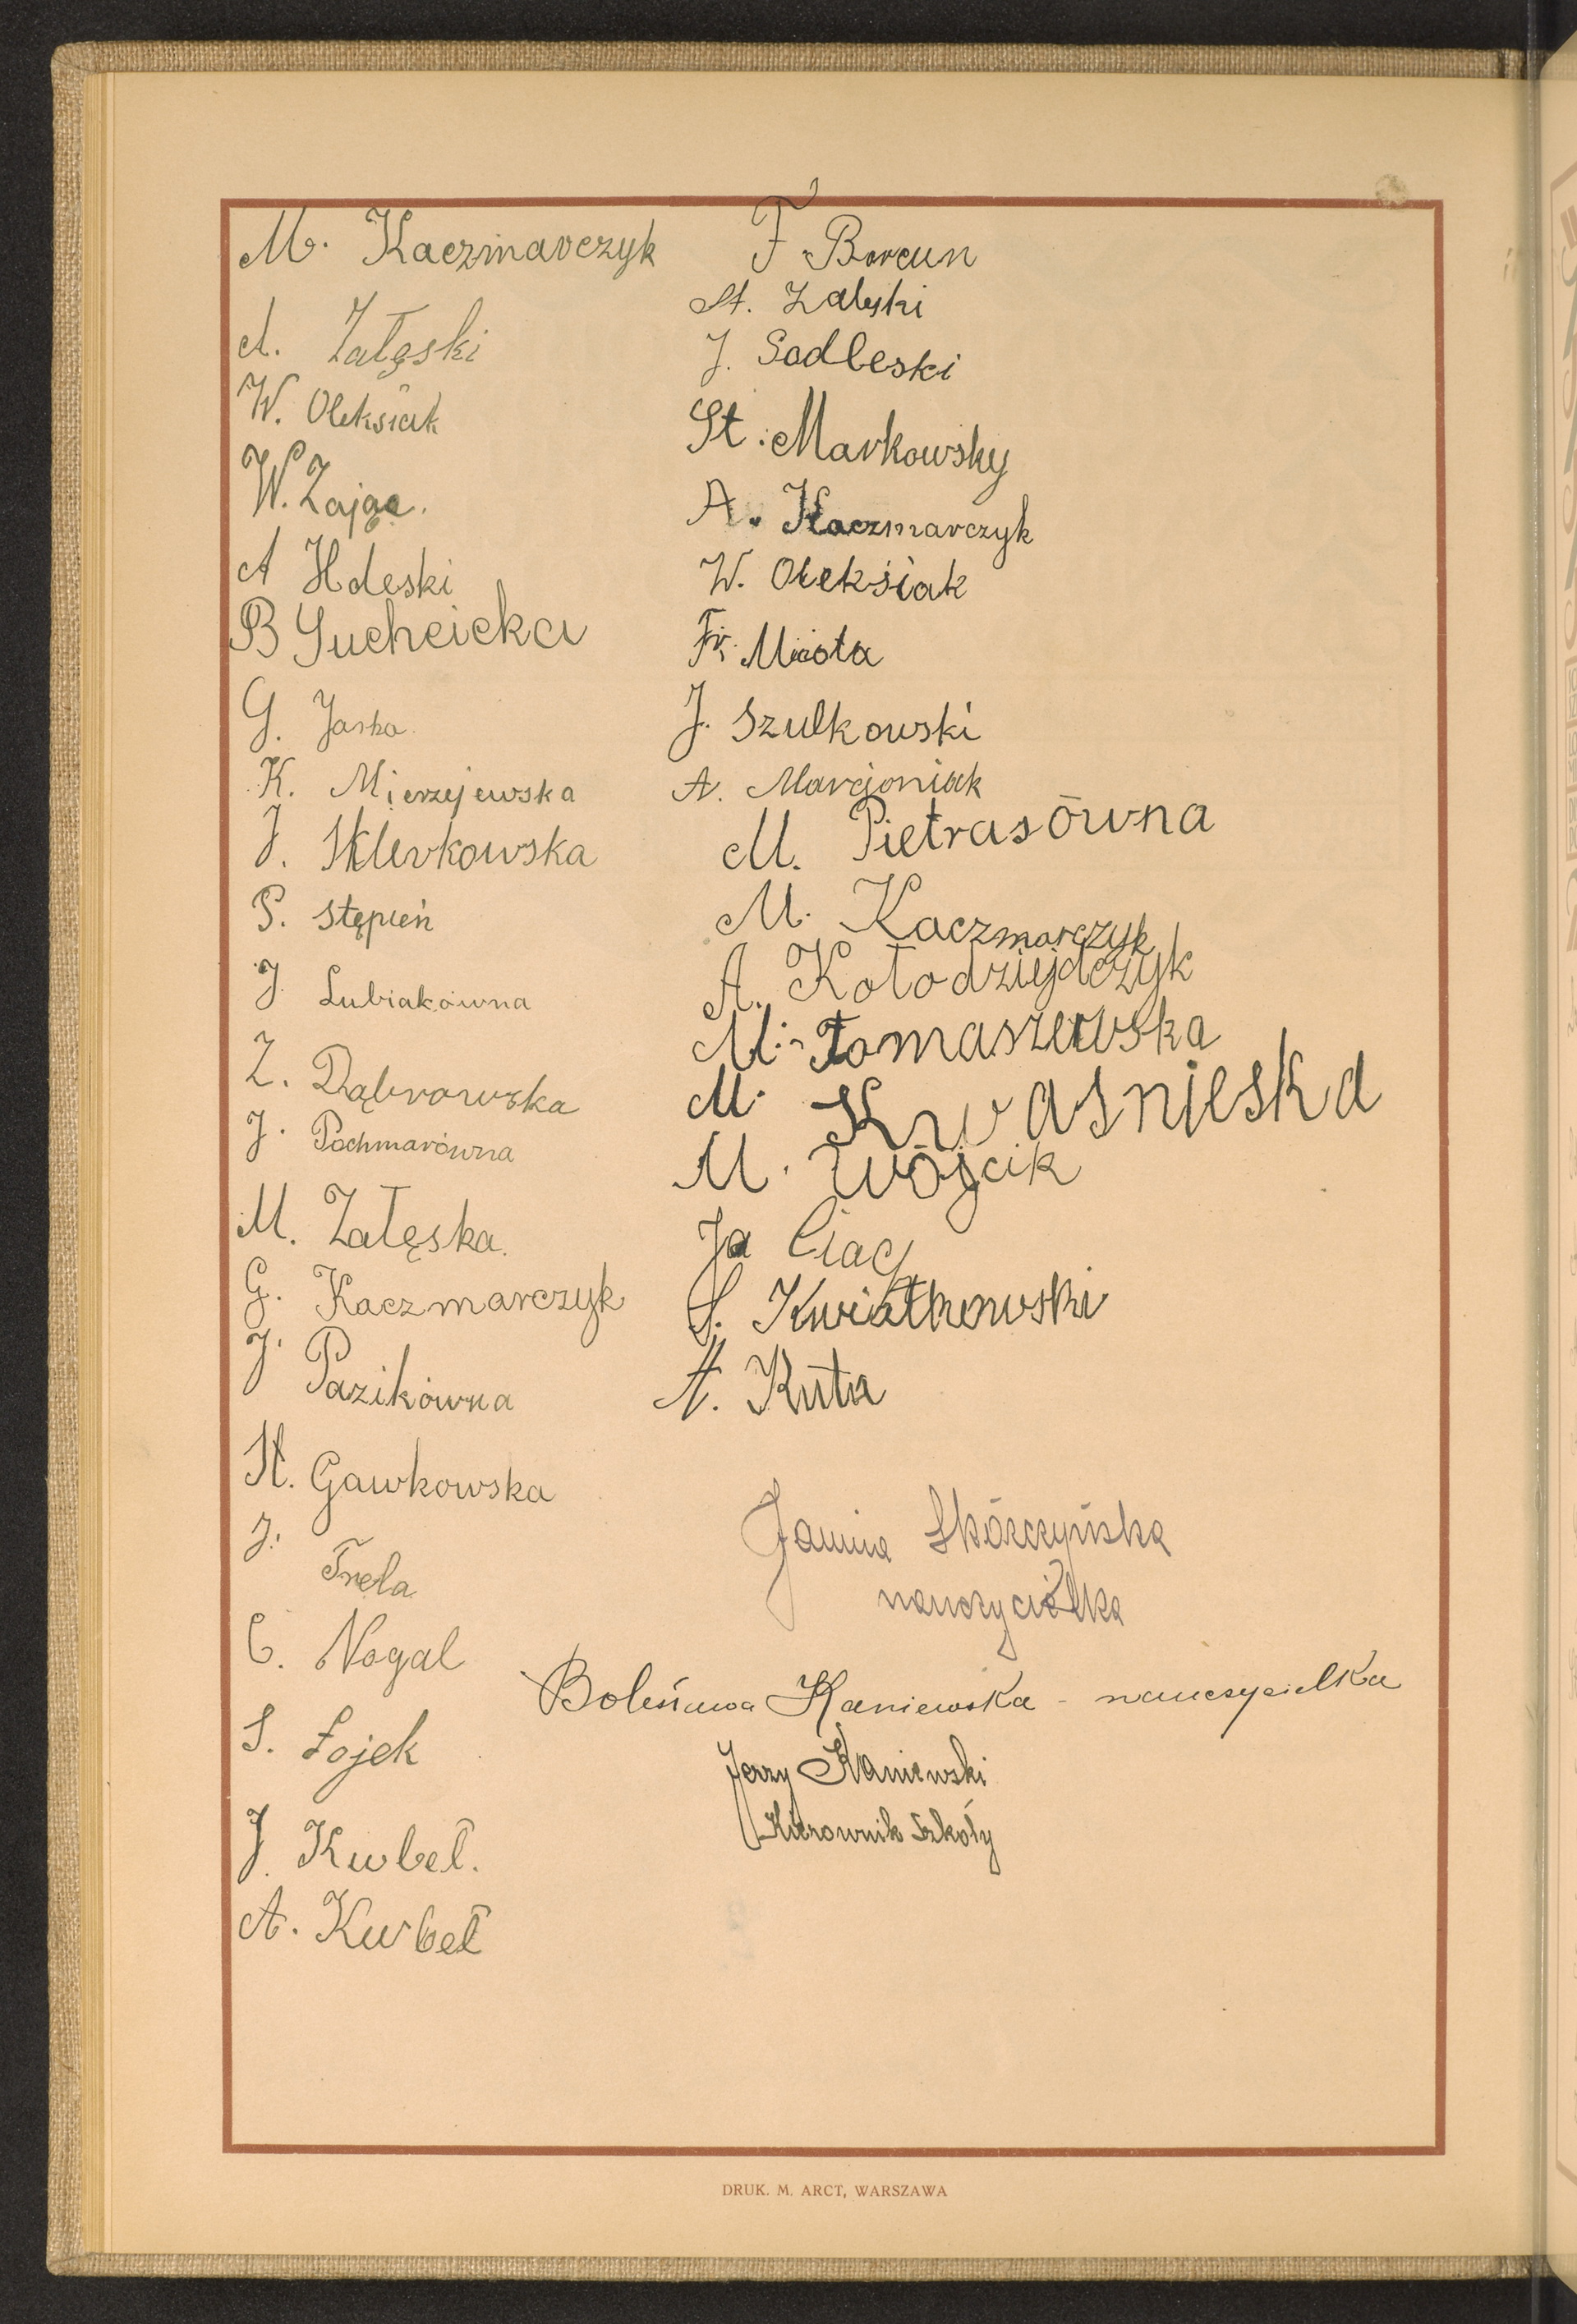 M. Kaczmarczyk
A. Załęski
W. Oleksiak
W. Zając.
A Hdeski
B Suchcicka
G. Jaska
K. Mierzejewska
J. Sklerkowska
S. Stępień
J. Lubiakówna
Z. Dąbrowska
J. Pochmarówna
M. Załęska.
G. Kaczmarczyk
J. Pazikówna
H. Gawkowska
J. Trela
C. Nogal
S. Łojek
J. Kurbeł.
A. Kurbeł
F. Borcun
St. Zaleski
J. Sadleski
St. Markowsky
A. Kaczmarczyk
W. Oleksiak
Fr. Miiota
J. Szulkowski
A. Marcjoniak
M. Pietrasówna
M. Kaczmarczyk
A. Kołodziejdczyk
M. Tomaszewska
M. Kwasnieska
M. Wójcik
Ja Ciąg
S. Kwiatkowski
A. Kuta
Janina Skórczyńska
nauczycielka
Bolesława Kaniewska - nauczycielka
Jerzy Kaniewski
Kierownik Szkoły
DRUK. M. ARCT, WARSZAWA